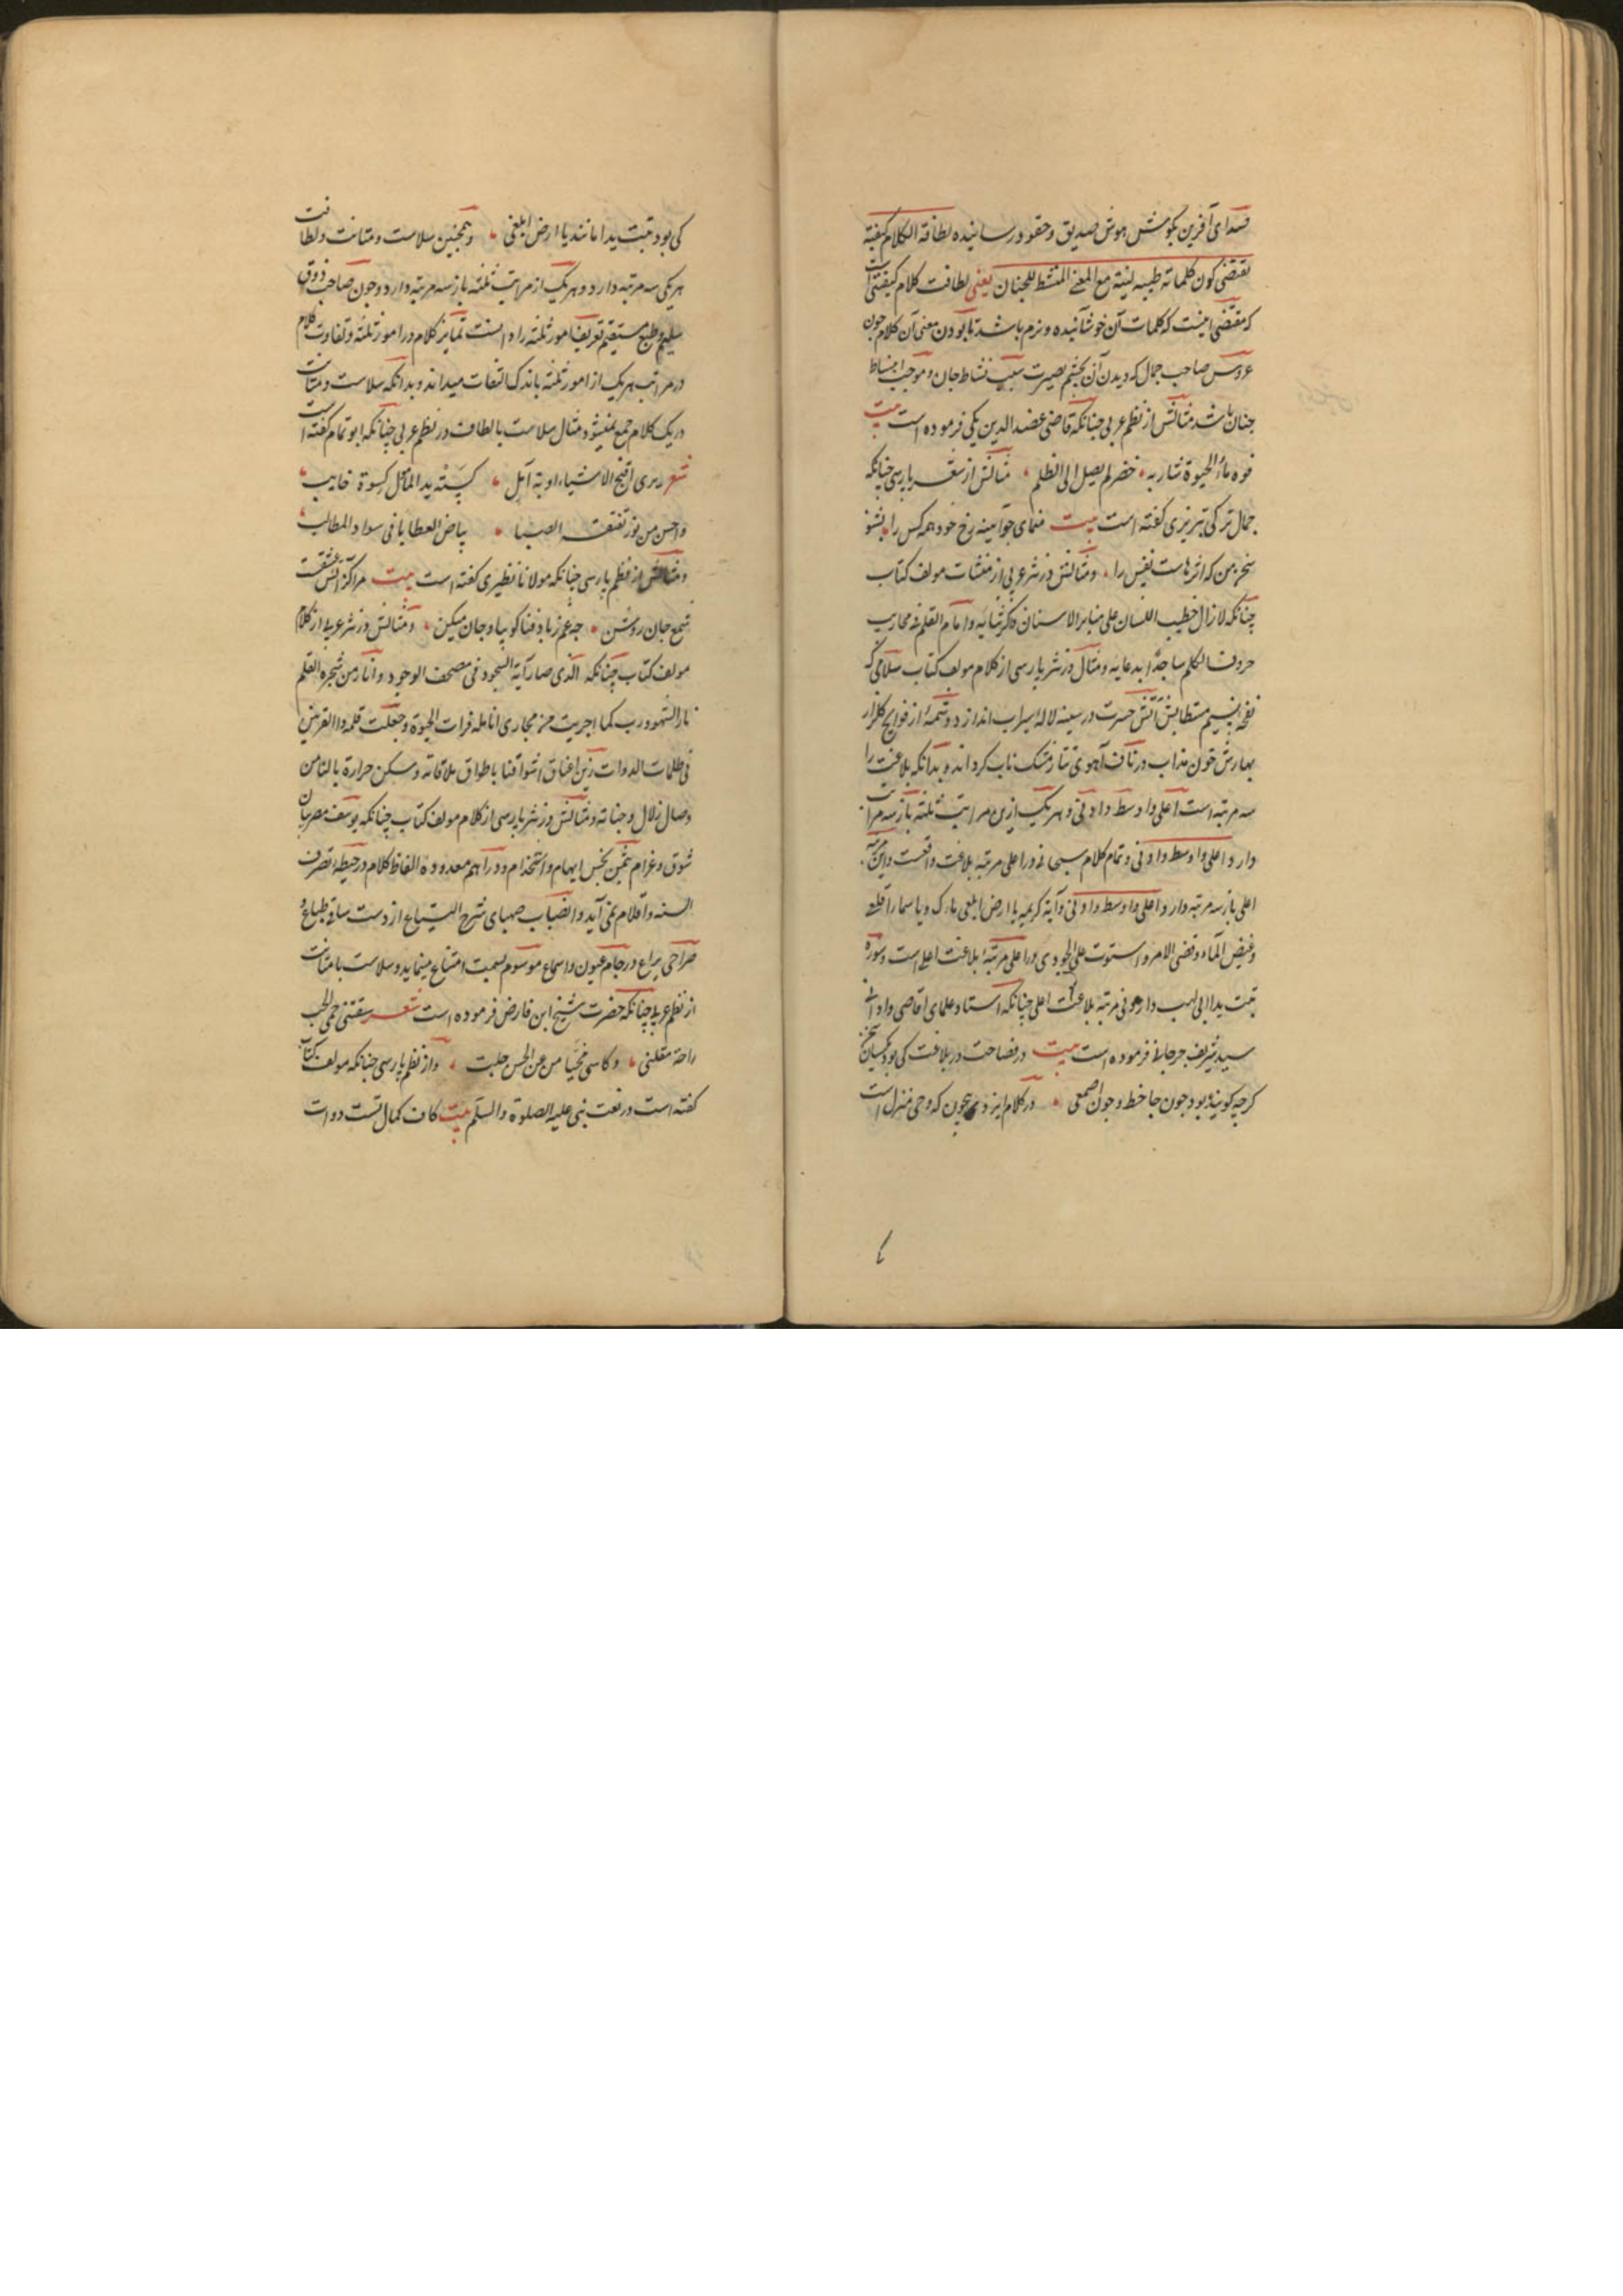 صدای آفرین بکوش هوش صدیق و حقود رسانیده لطافة الکلام کیفیة
تقتضی کون کلماته طیبه لینة مع المعنی المنشط للجنان یعنی لطافت کلام کیفیتی است
که مقتضی اینست که کلمات آن خوشآینده و نرم باشد تا بودن معنی آن کلام چون
عروس صاحب جمال که دیدن آن بچشم بصیرت سبب نشاط جان و موجب انبساط
جنان باشد مثالش از نظم عربی چنانکه قاضی عضد الدین یکی فرموده است بیت
فوه ماء الحیوة شاربه خضر لم یصل الی الظلم مثالش از شعر پارسی چنانکه
جمال ترکی تبریزی کفته است بیت منمای جو آیینه رخ خود همه کس را بشنو
سخن من که اثرهاست نفس را و مثالش در نثر عربی از منشات مولف کتاب
چنانکه لازال خطیب اللسان علی منابر الاسنان ذاکر ثنائه و امام القلم فی محاریب
حروف الکلم ساجدا بدعایه و مثال در نثر پارسی از کلام مولف کتاب سلامی که
نفحه نسیم مستطابش آتش حسرت در سینه لاله سیراب اندازد و شمه از فوایح کلزار
بهارش خون مذاب در ناف آهوی تتار مشک ناب کرداند و بدانکه بلاغت را
سه مرتبه است اعلی و اوسط و ادنی و هر یک ازین مراتب ثلثه باز سه مراتب
دارد اعلی و اوسط و ادنی و تمام کلام سبحانه در اعلی مرتبه بلاغت واقعست و این مرتبه
اعلی باز سه مرتبه دارد اعلی و اوسط و ادنی و آیه کریمه یا ارض ابلعی ماءک و یا سماء اقلعی
و غیض الماء و قضی الامر و استوت علی الجودی در اعلی مرتبه بلاغت اعلی است و سوره
تبت یدا ابی لهب در ادنی مرتبه بلاغت اعلی چنانکه استاد علمای اقاصی و ادانی
سید شریف جرجانی فرموده است بیت در فصاحت در بلاغت کی بود یکسان سخن
کرچه کوینده بود چون جاحظ و چون اصمعی در کلام ایزد بیچون که وحی منزل است
کی بود تبت یدا مانند یا ارض ابلعی و همچنین سلاست و متانت و لطافت
هر یکی سه مرتبه دارد و هر یک از مراتب ثلثه باز سه مرتبه دارد و چون صاحب ذوق
سلیم و طبع مستقیم تعریف امور ثلثه را دانست تمایز کلام در امور ثلثه و تفاوت کلام
در مراتب هر یک از امور ثلثه باندک التفات میداند و بدانکه سلاست و متانت
در یک کلام جمع نمیشود و مثال سلاست با لطافت در نظم عربی چنانکه ابو تمام کفته است
شعر یری اقبح الاشیاء اوبة آمل کسته ید المأمول کسوة خایب
و احسن من نور تفتقه الصبا بیاض العطایا فی سواد المطالب
و مثالش از نظم پارسی چنانکه مولانا نظیری کفته است بیت مرا کز آتش عشقت
شمع جان روشن چه غم ز باد فنا کو بیا و جان میکن و مثالش در نثر عربی از کلام
مولف کتاب چنانکه الذی صار آیة السجود فی مصحف الوجود و انار من شجره القلم
نار الشهود رب کما اجریت من مجاری انامله فرات الحیوة و جعلت قلمه ذا القرنین
فی ظلمات الدوات زین اعناق اشواقنا باطواق ملاقاته و سکن حرارة بالنا من
وصال زلال و جناته و مثالش در نثر پارسی از کلام مولف کتاب چنانکه یوسف مصر بیان
شوق و غرام بثمن بخس ایهام و استخدام و دراهم معدوده الفاظ کلام در حیطه تصرف
السنه و اقلام نمی آید و انصباب صهبای شرح التیاع از دست ساقی طباع و
صراحی یراع در جام عیون و اسماع موسوم بسمت امتناع مینماید و سلاست با متانت
از نظم عربی چنانکه حضرت شیخ ابن فارض فرموده است شعر سقتنی حمی الحب
راحة مقلتی و کاسی محیا من عن الحسن جلت و از نظم پارسی چنانکه مولف کتاب
کفته است در نعت نبی علیه الصلوة و السلم بیت کاف کمال تست دوات